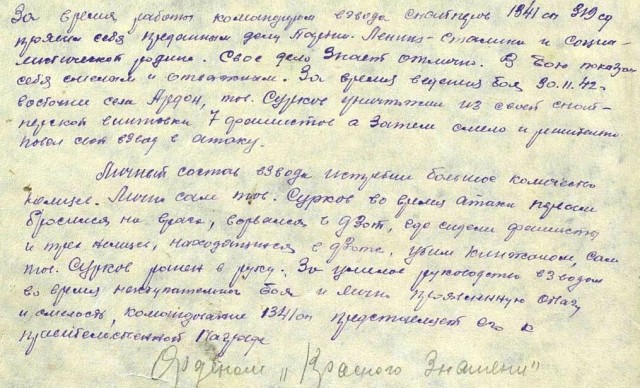 За время работы командиром взвода снайперов 1341 сп 319 сд
проявил себя преданным делу Партии Ленина-Сталина и социа-
листической родине. Свое дело знает отлично. В бою показал
себя смелым и отважным. За время ведения боя 30.11.42
восточнее села Ардон, тов. Сурков уничтожил из своей снай-
перской винтовки 7 фашистов а затем смело и решительно
повел свой взвод в атаку.
Личный состав взвода истребил большое количество
немцев. Лично сам тов. Сурков во время атаки первым
бросился на врага, ворвался в дзот, где сидели фашисты
и трех немцев, находящихся в дзоте, убил кинжалом, сам
тов. Сурков ранен в руку. За умелое руководство взводом
во время наступательного боя и лично проявленную отвагу
и смелость, командование 1341 сп представляет его к
правительственной награде
Орденом „Красного Знамени"